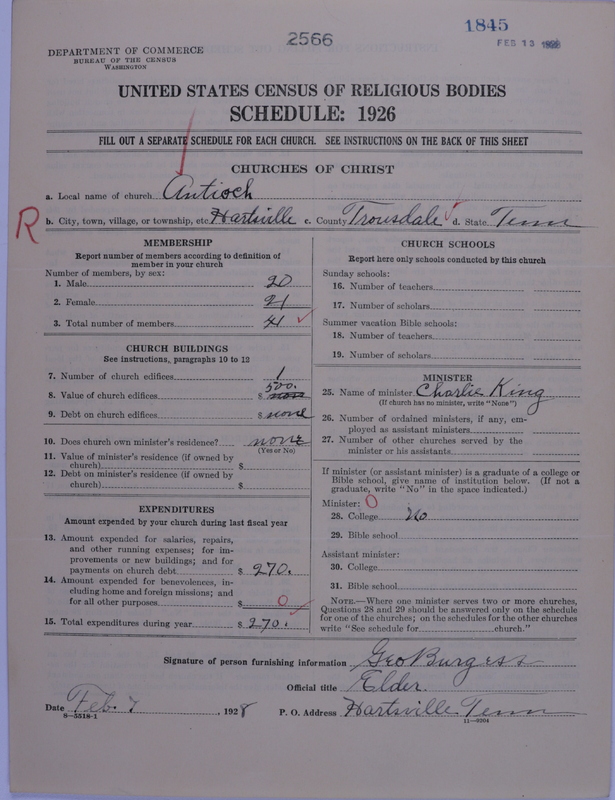 2566
1845
FEB 13 1928
DEPARTMENT OF COMMERCE
BUREAU OF THE CENSUS
WASHINGTON
UNITED STATES CENSUS OF RELIGIOUS BODIES
SCHEDULE: 1926
FILL OUT A SEPARATE SCHEDULE FOR EACH CHURCH. SEE INSTRUCTIONS ON THE BACK OF THIS SHEET
CHURCHES OF CHRIST
a. Local name of church Antioch
R
b. City, town, village, or township, etc. Hartsville c. County Trousdale d. State Tenn
MEMBERSHIP
Report number of members according to definition of
member in your church
Number of members, by sex:
1. Male 20
2. Female 21
3. Total number of members 41
CHURCH BUILDINGS
See instructions, paragraphs 10 to 12
7. Number of church edifices 1
500.
8. Value of church edifices $ none
9. Debt on church edifices $ none
10. Does church own minister's residence? none
(Yes or No)
11. Value of minister's residence (if owned by
church) $
12. Debt on minister's residence (if owned by
church) $
EXPENDITURES
Amount expended by your church during last fiscal year
13. Amount expended for salaries, repairs,
and other running expenses; for im-
provements or new buildings; and for
payments on church debt $ 270.
14. Amount expended for benevolences, in-
cluding home and foreign missions; and
for all other purposes $ 0
15. Total expenditures during year $ 270.
CHURCH SCHOOLS
Report here only schools conducted by this church
Sunday schools:
16. Number of teachers
17. Number of scholars
Summer vacation Bible schools:
18. Number of teachers
19. Number of scholars
MINISTER
25. Name of minister Charlie King
(If church has no minister, write "None")
26. Number of ordained ministers, if any, em-
ployed as assistant ministers
27. Number of other churches served by the
minister or his assistants
If minister (or assistant minister) is a graduate of a college or
Bible school, give name of institution below. (If not a
graduate, write "No" in the space indicated.)
Minister: 0
28. College No
29. Bible school
Assistant minister:
30. College
31. Bible school
NOTE.—Where one minister serves two or more churches,
Questions 28 and 29 should be answered only on the schedule
for one of the churches; on the schedules for the other churches
write "See schedule for church."
Signature of person furnishing information Geo Burgess
Official title Elder.
Date Feb. 7, 1928 P. O. Address Hartsville Tenn
8—5518-1 11—9204